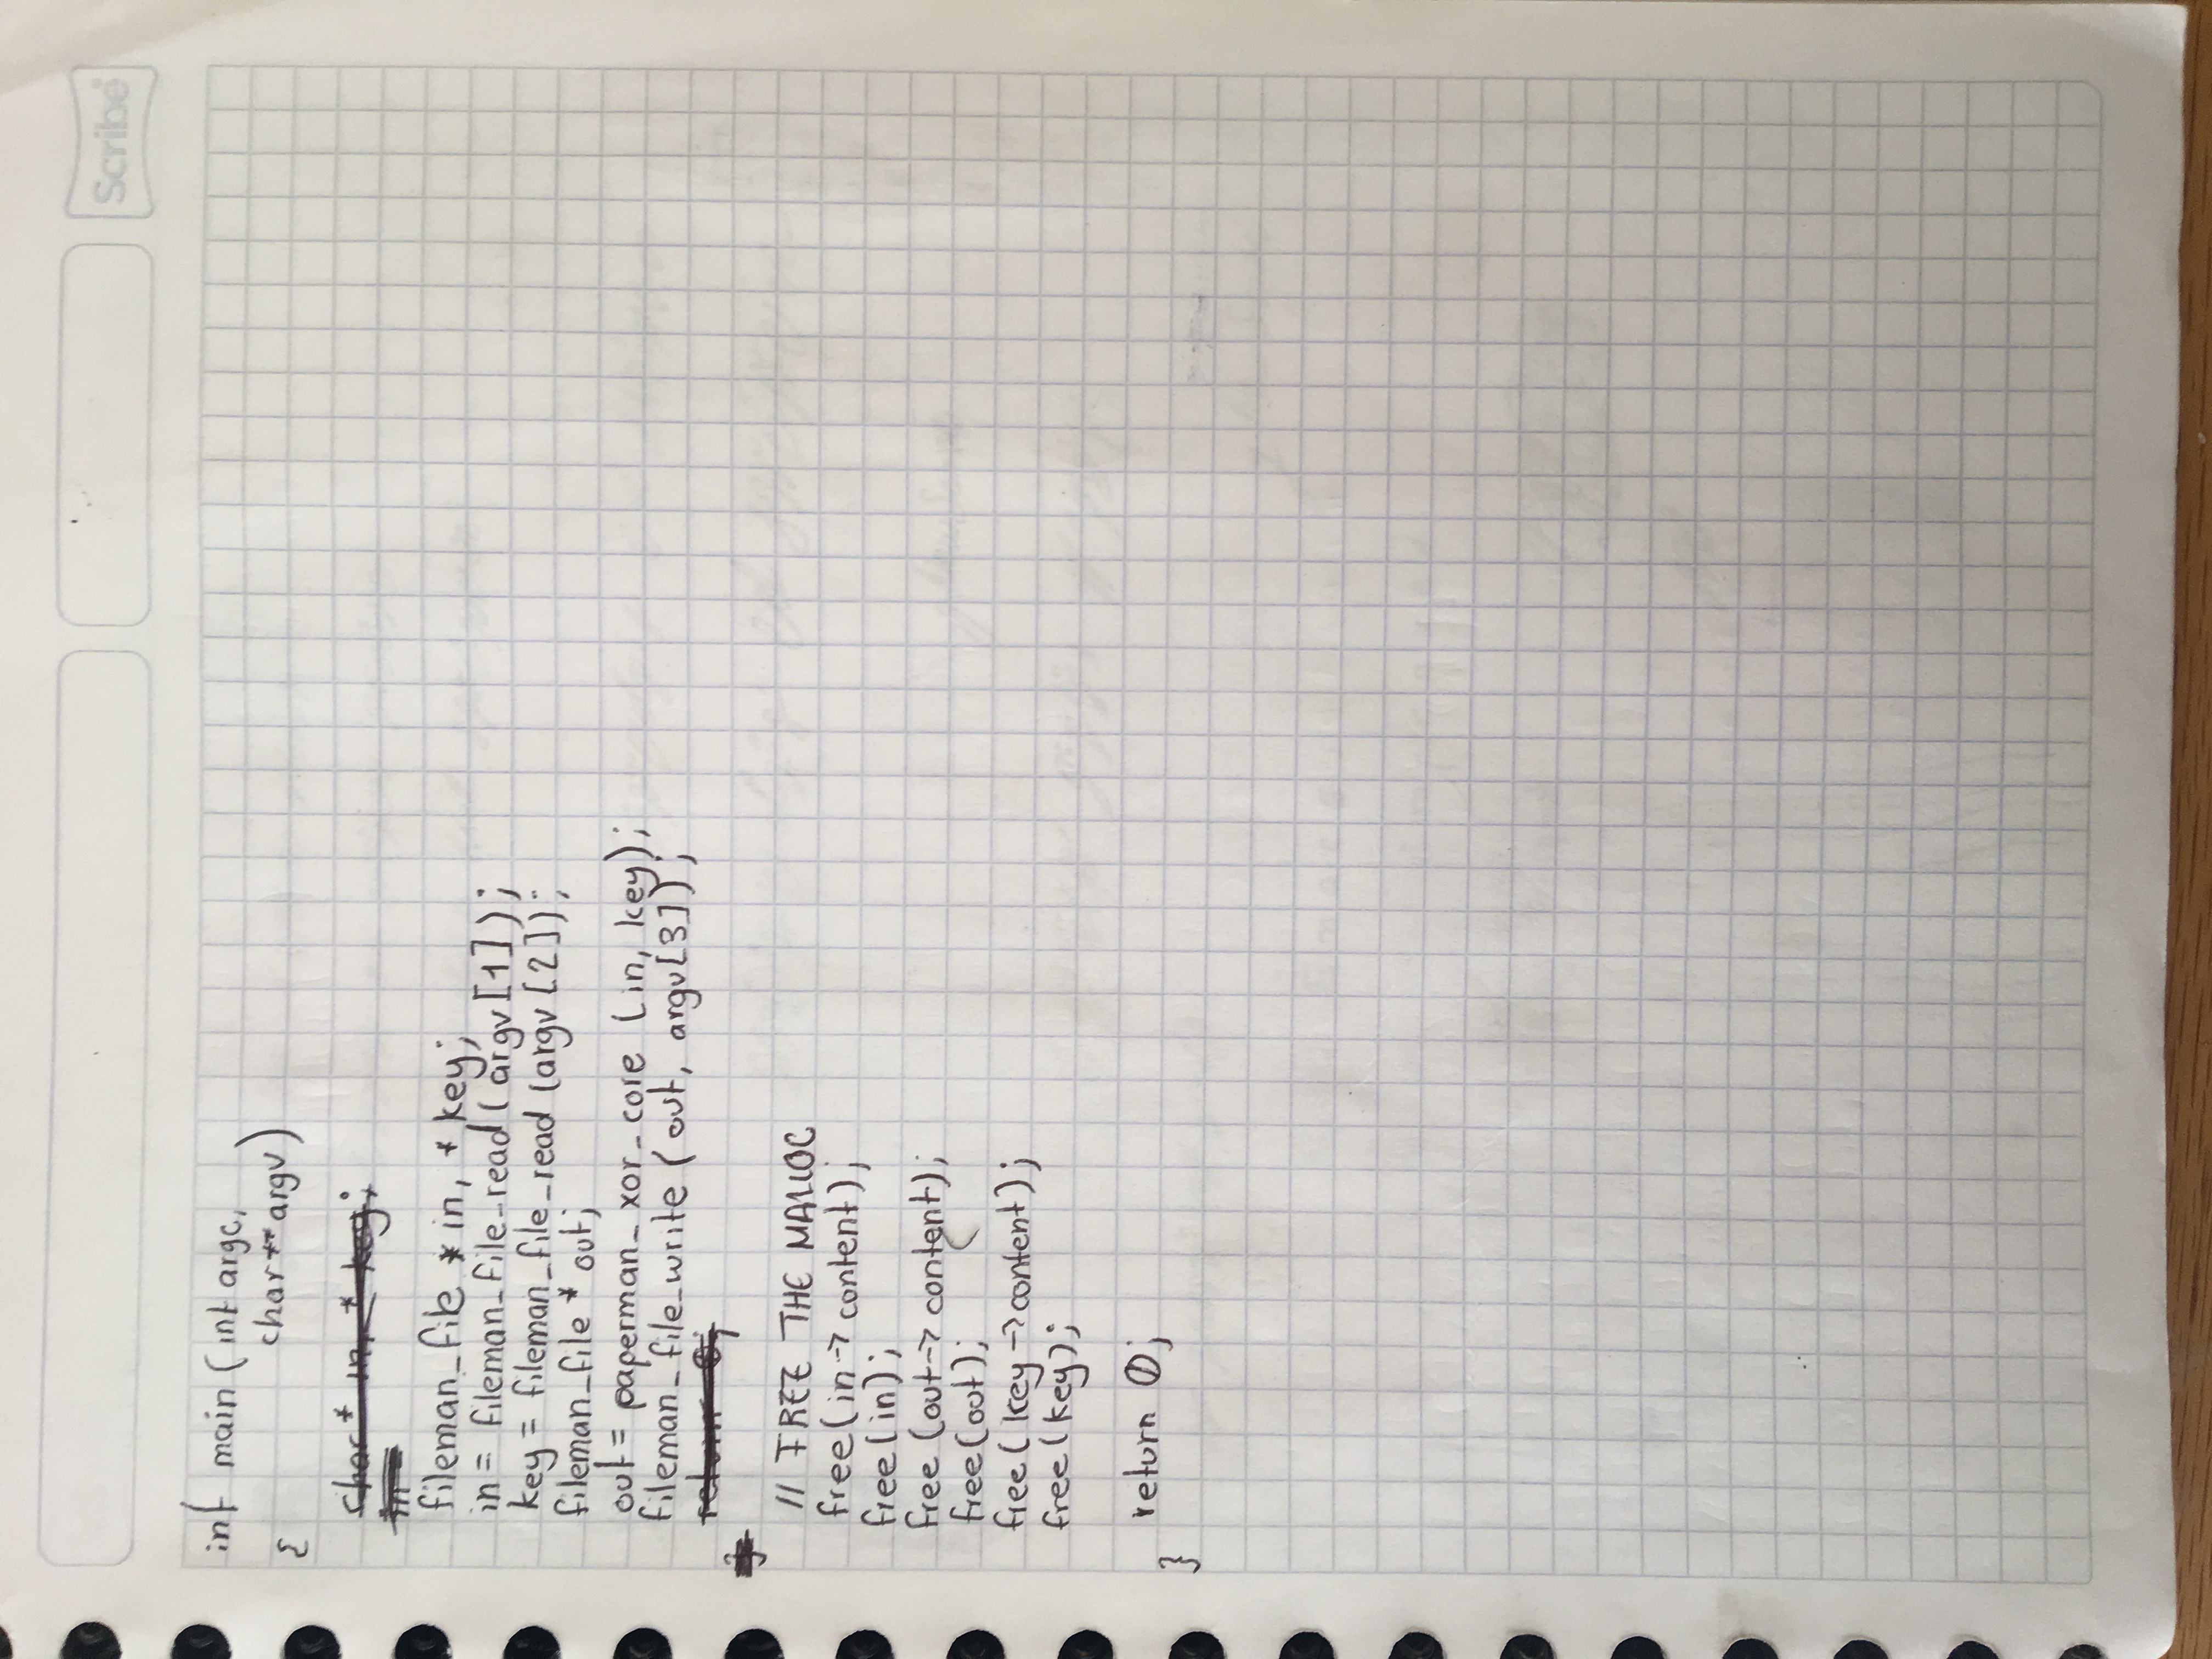 Scribe
int main (int argc,
char** argv)
{
char* in, * key;
in =
fileman_file * in, * key;
in = fileman_file_read (argv[1]);
key = fileman_file_read (argv[2]);
fileman_file * out;
out = paperman_xor_core (in, key);
fileman_file_write (out, argv[3]);
return 0;
}
// FREE THE MALLOC
free(in->content);
free(in);
free (out->content);
free(out);
free(key->content);
free(key);
return 0;
}